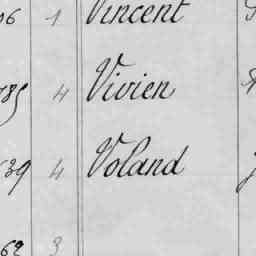 06 1 Vincent
785 4 Vivien
639 4 Voland
62 3